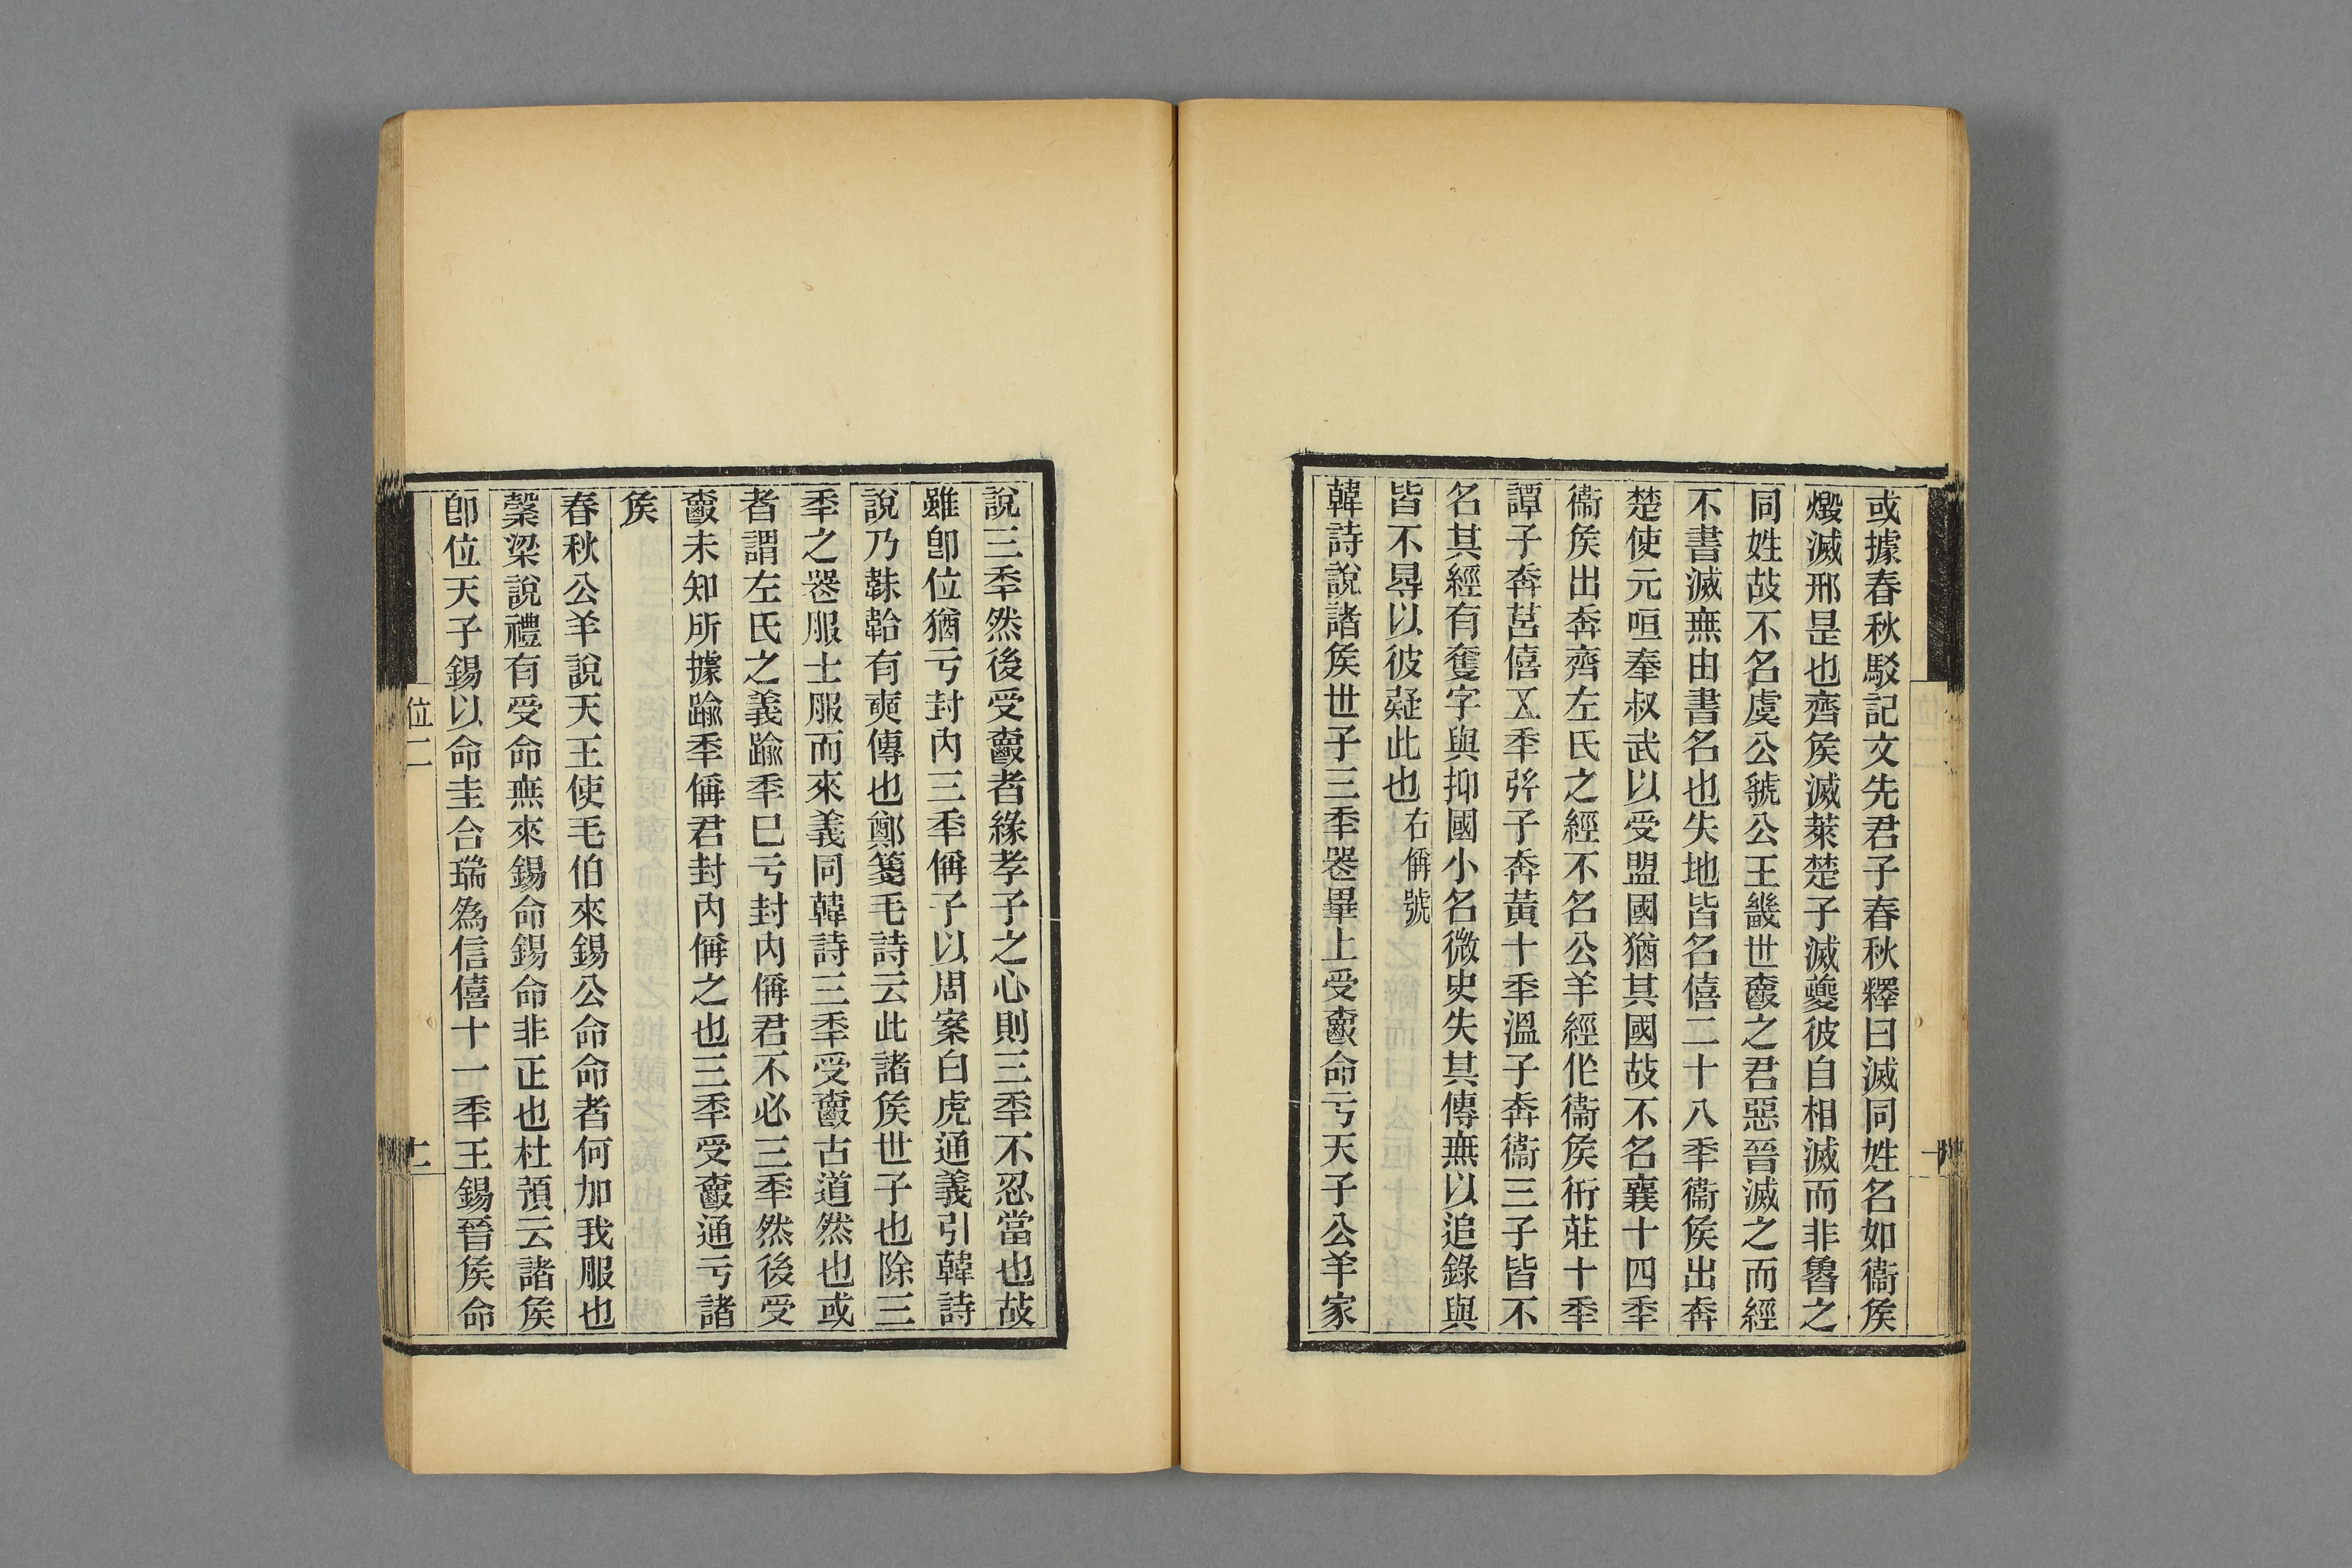 或據春秋駁記文先君子春秋釋曰滅同姓名如衞矦
燬滅邢是也齊矦滅萊楚子滅夔彼自相滅而非魯之
同姓故不名虞公虢公王畿世爵之君惡晉滅之而經
不書滅無由書名也失地皆名僖二十八秊衞矦出奔
楚使元咺奉叔武以受盟國猶其國故不名襄十四秊
衞矦出奔齊左氏之經不名公羊經作衞矦衎莊十秊
譚子奔莒僖五秊弦子奔黃十秊溫子奔衞三子皆不
名其經有奪字與抑國小名微史失其傳無以追錄與
皆不㝵以彼疑此也右偁號
韓詩說諸矦世子三秊喪畢上受爵命亏天子公羊家
說三秊然後受爵者緣孝子之心則三秊不忍當也故
雖卽位猶亏封內三秊偁子以周案白虎通義引韓詩
說乃韎韐有奭傳也鄭箋毛詩云此諸矦世子也除三
秊之喪服士服而來義同韓詩三秊受爵古道然也或
者謂左氏之義踰秊巳亏封內偁君不必三秊然後受
爵未知所據踰秊偁君封內偁之也三秊受爵通亏諸
矦
春秋公羊說天王使毛伯來錫公命命者何加我服也
榖梁說禮有受命無來錫命錫命非正也杜預云諸矦
卽位天子錫以命圭合瑞爲信僖十一秊王錫晉矦命
位二
二